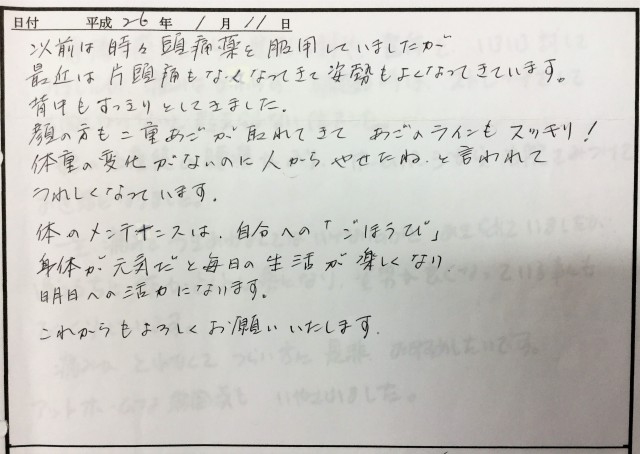 日付 平成 26 年 1 月 11 日
以前は時々頭痛薬を服用していましたが
最近は片頭痛もなくなってきて姿勢もよくなってきています。
背中もすっきりとしてきました。
顔の方も二重あごが取れてきて あごのラインもスッキリ!
体重の変化がないのに人からやせたね、と言われて
うれしくなっています。
体のメンテナンスは、自分への「ごほうび」
身体が元気だと毎日の生活が楽しくなり
明日への活力になります。
これからもよろしくお願いいたします。